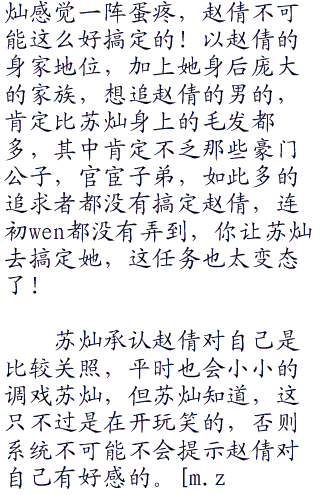 灿感觉一阵蛋疼，赵倩不可
能这么好搞定的！以赵倩的
身家地位，加上她身后庞大
的家族，想追赵倩的男的，
肯定比苏灿身上的毛发都
多，其中肯定不乏那些豪门
公子，官宦子弟，如此多的
追求者都没有搞定赵倩，连
初wen都没有弄到，你让苏灿
去搞定她，这任务也太变态
了！
苏灿承认赵倩对自己是
比较关照，平时也会小小的
调戏苏灿，但苏灿知道，这
只不过是在开玩笑的，否则
系统不可能不会提示赵倩对
自己有好感的。[m.z